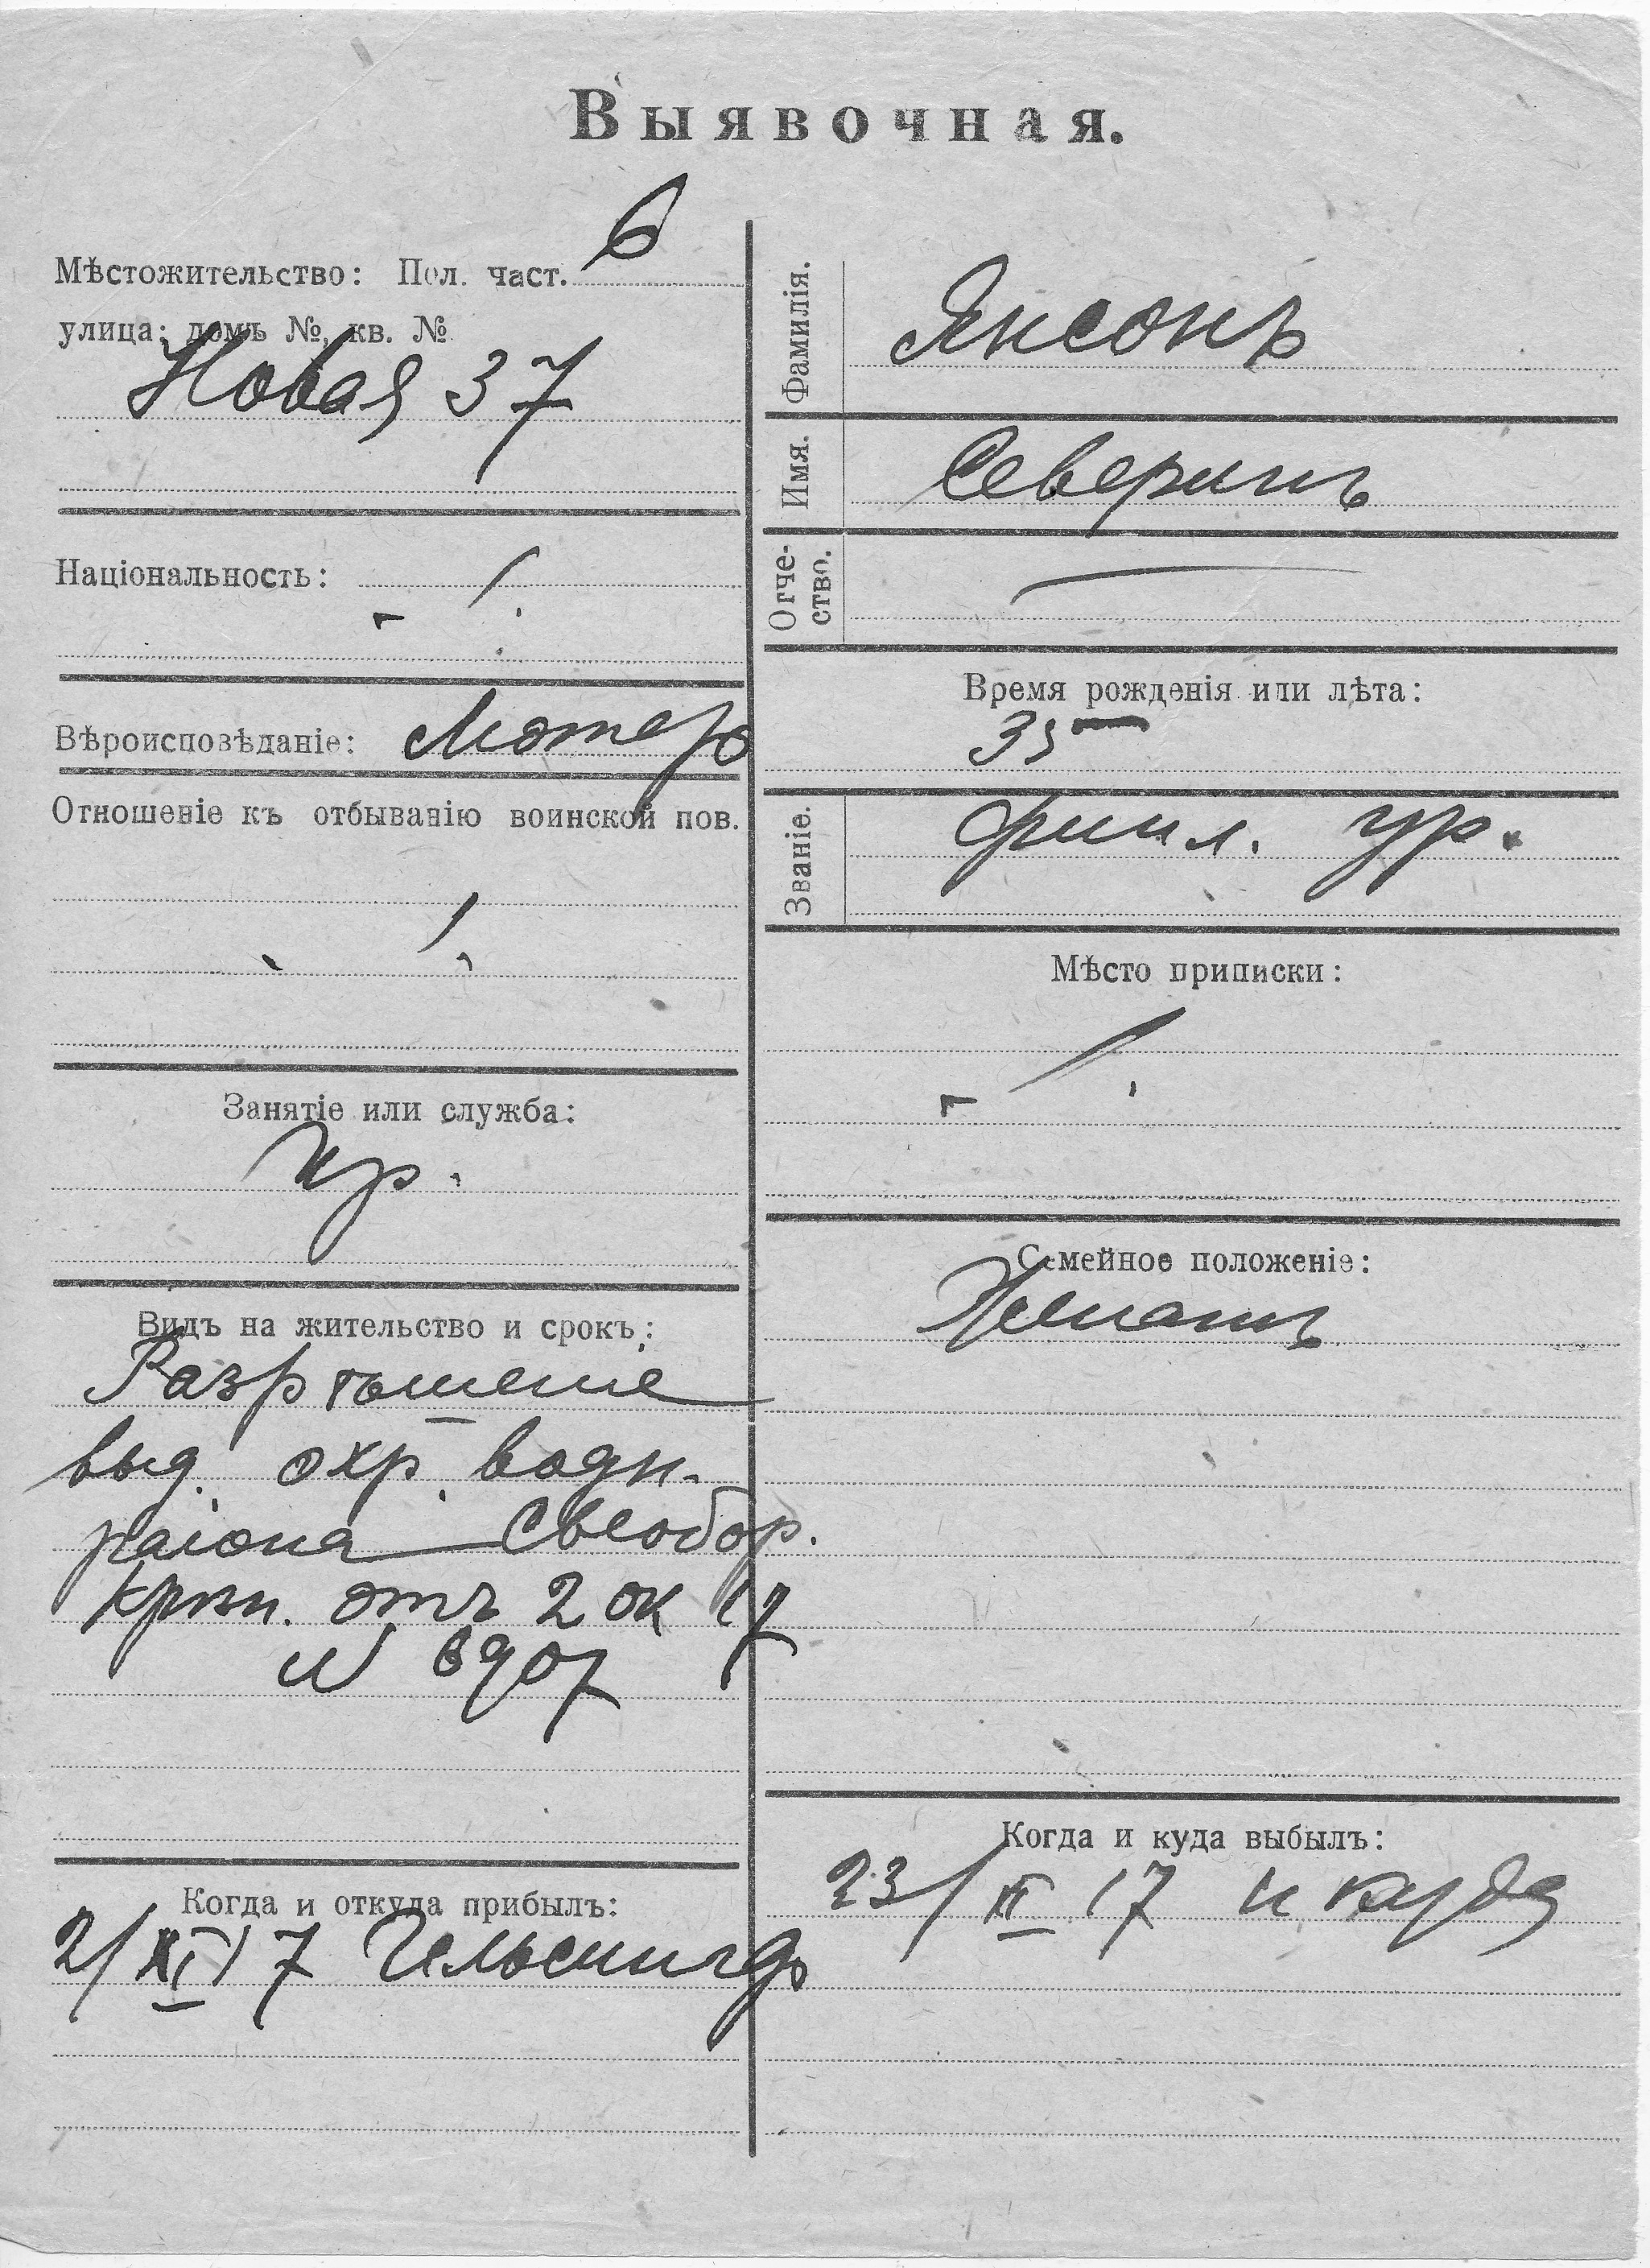 Выявочная.
Мѣстожительство: Пол. част. 6
улица; домъ №, кв. №
Новая 37
Національность:
Вѣроисповѣданіе: Лютер
Отношеніе къ отбыванію воинской пов.
Занятіе или служба:
Видъ на жительство и срокъ:
Разрѣшеніе
выд. охр. водн.
раіона Свеабор.
крѣп. отъ 2 ок 17
N 6907
Когда и откуда прибылъ:
2/XI 17 Гельсингф
Фамилія. Янсонъ
Имя. Северинъ
Отче-
ство.
Время рожденія или лѣта:
35
Званіе. финл. ур.
Мѣсто приписки:
Семейное положеніе:
Женатъ
Когда и куда выбылъ:
23/II 17